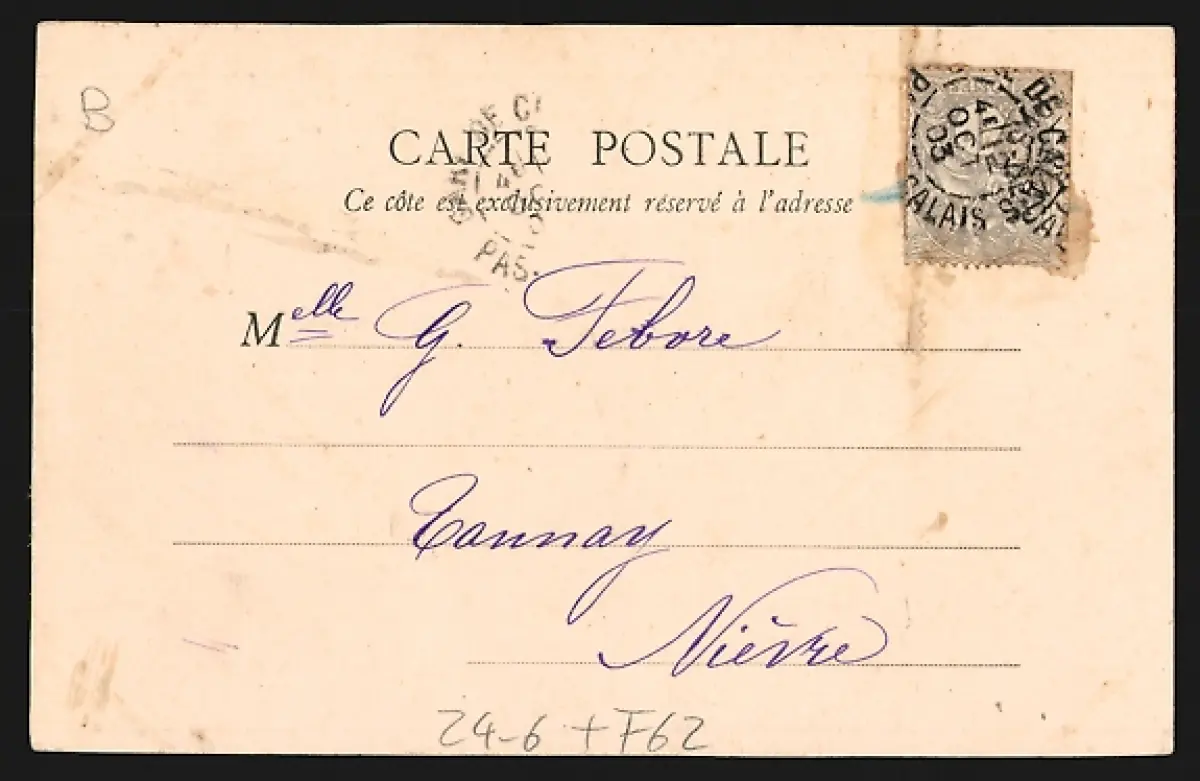 B
CARTE POSTALE
Ce côte est exclusivement réservé à l'adresse
DE C
PAS
DE CALAIS
OCT
03
CALAIS
Melle G. Febore
Tannay
Nièvre
24-6 + F62